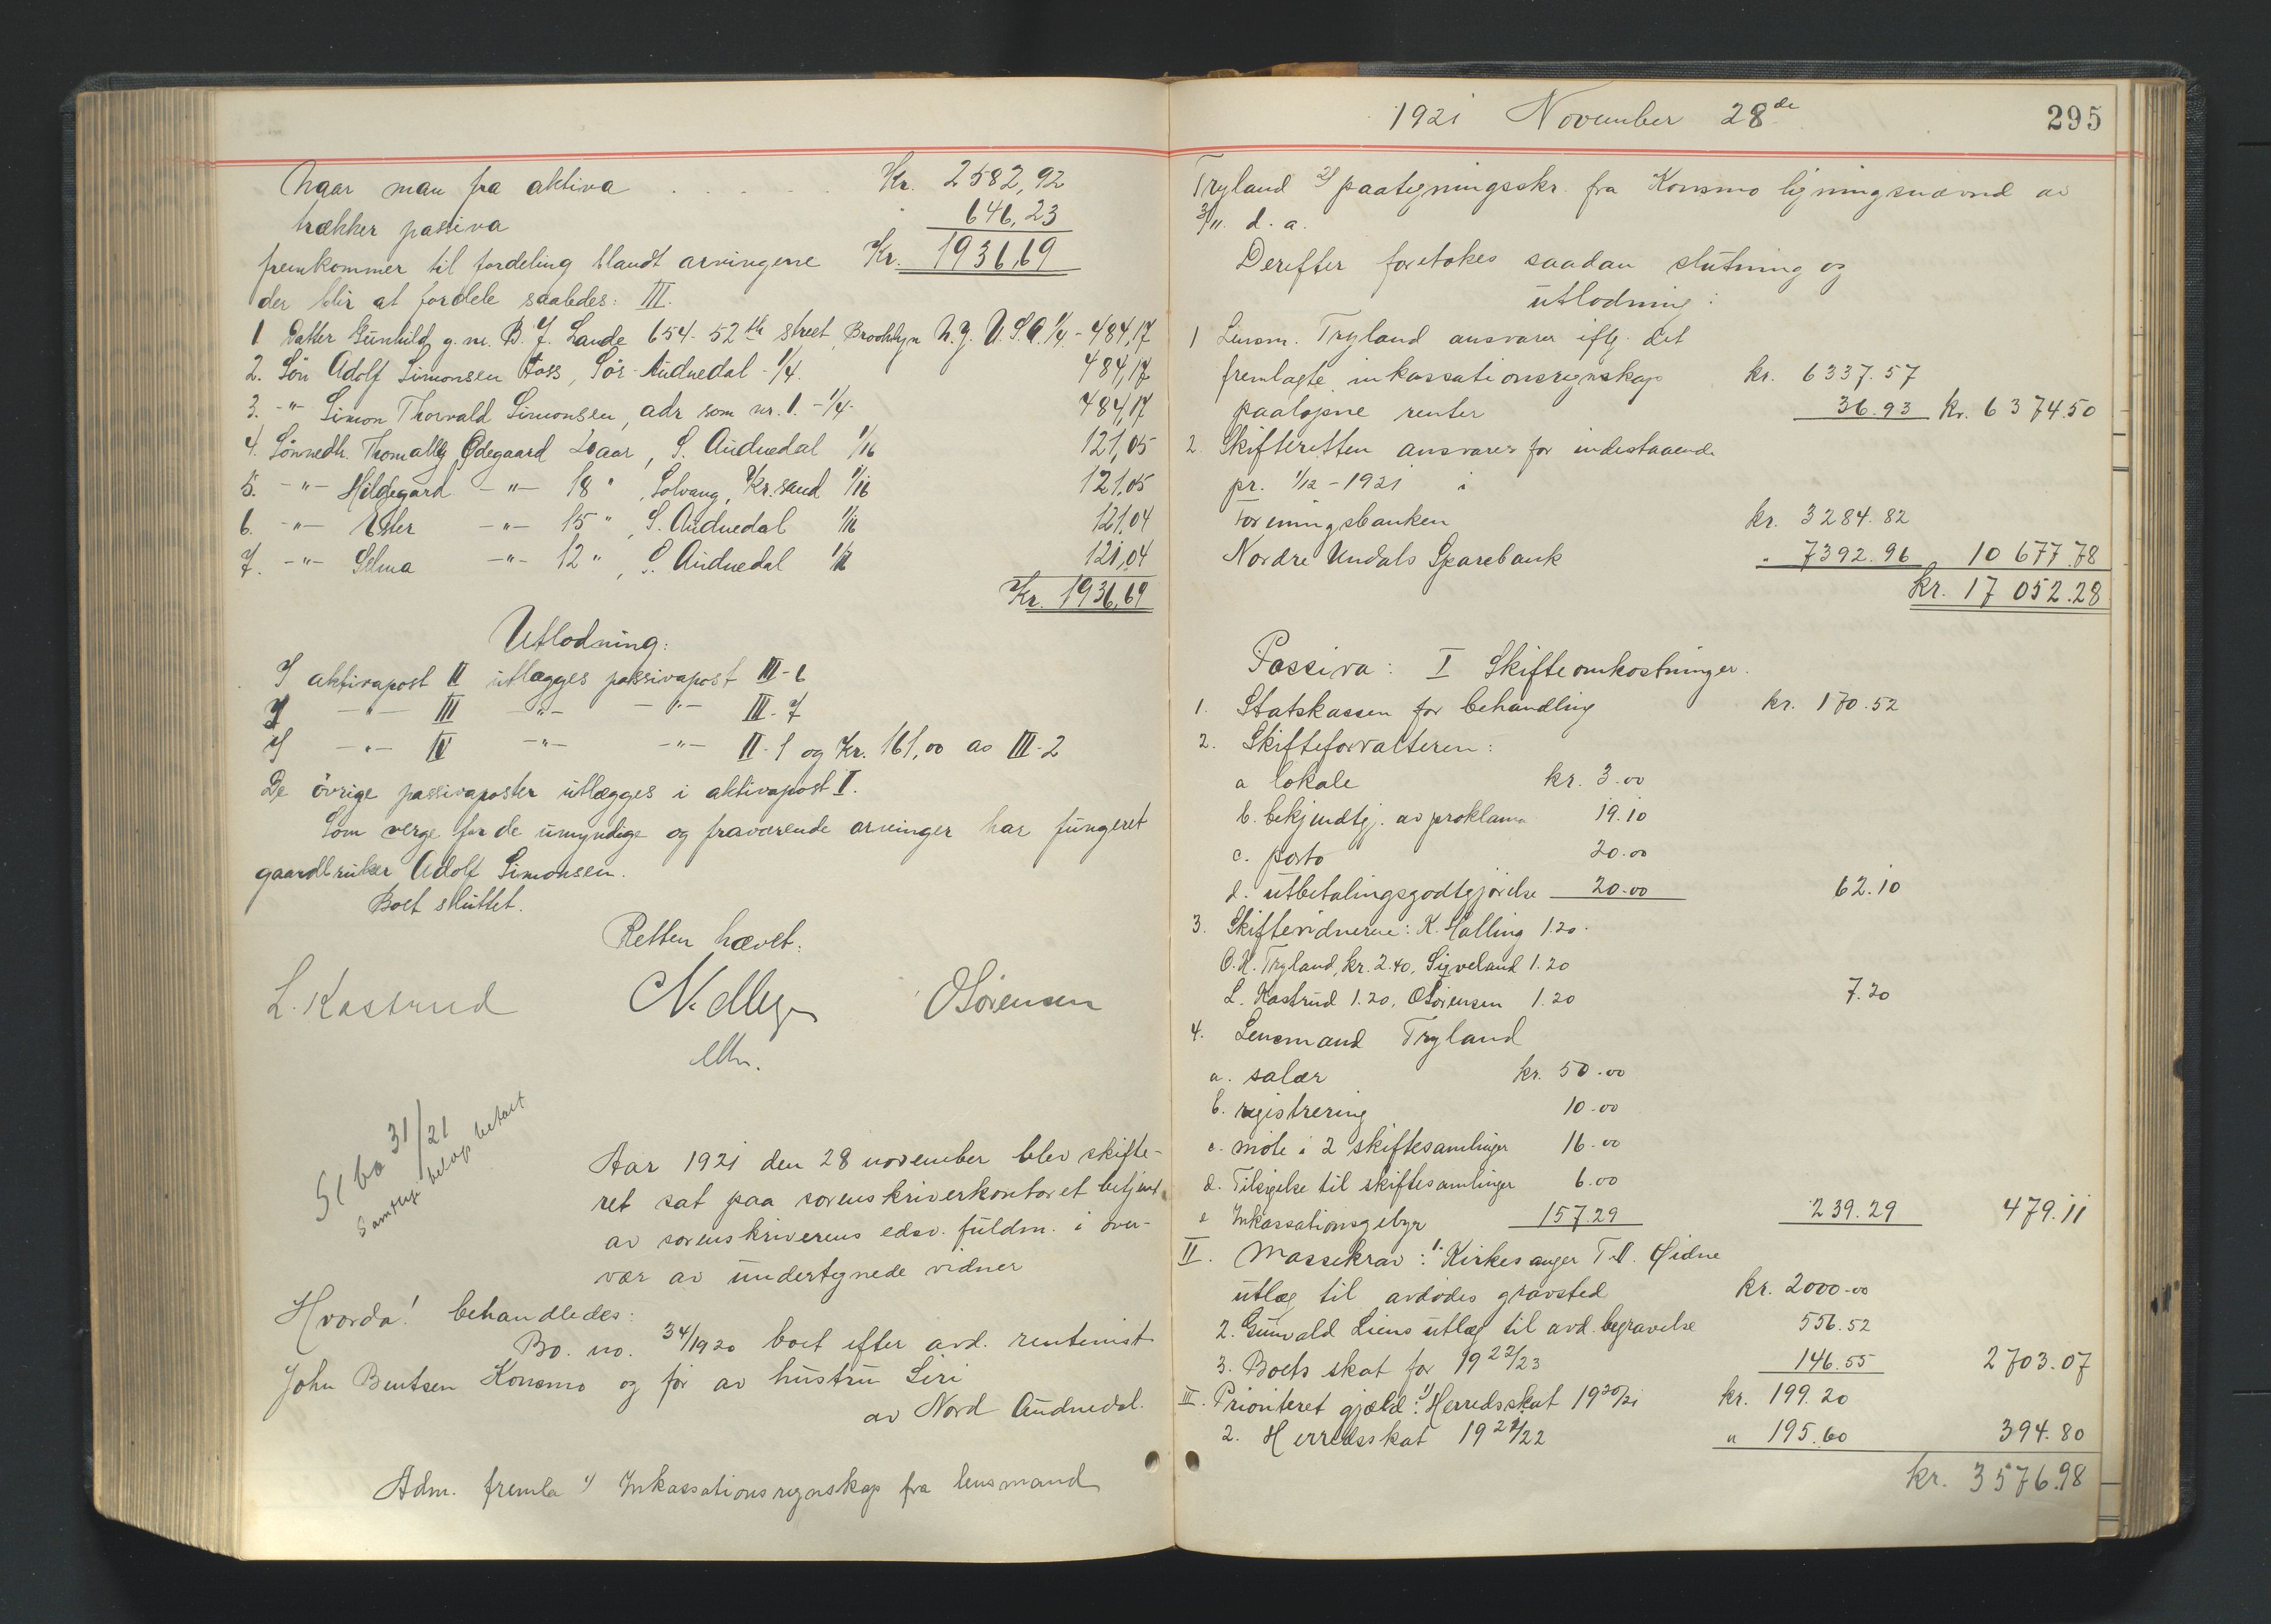 Naar man fra aktiva . . . . . Kr. 2582,92
trækker passiva 646,23
fremkommer til fordeling blandt arvingerne Kr. 1936,69
der blir at fordele saaledes: III.
1 Datter Gunhild g. m. B. J. Lande 654-52th street, Brooklyn N.Y. U.S.A. 1/4 - 484,17
2. Søn Adolf Simonsen Foss, Sør-Audnedal - 1/4. 484,17
3. -"- Simon Thorvald Simonsen, adr som nr. 1. - 1/4 - 484,17
4. Sønnedtr. Thomally Ødegaard 20 aar, S. Audnedal 1/16 121,05
5. -"- Hildegard -"- 18 ", Solvang, Kr.sand 1/16 121,05
6. -"- Ester -"- 15 ", S. Audnedal 1/16 121,04
7. -"- Selma -"- 12 ", S. Audnedal 1/16 121,04
Kr. 1936,69
Utlodning:
I aktivapost II utlægges passivapost III-6
I -"- III -"- -"- III-7
I -"- IV -"- -"- II-1 og Kr. 161,00 av III-2
De øvrige passivaposter utlægges i aktivapost I.
Som verge for de umyndige og fraværende arvinger har fungeret
gaardbruker Adolf Simonsen.
Boet sluttet.
Retten hævet.
L. Kastrud OSørensen
Se bo 31/21
Samtlige beløp betalt
Aar 1921 den 28 november blev skifte-
ret sat paa sorenskriverkontoret betjent
av sorenskriverens edsv. fuldm. i over-
vær av undertegnede vidner
Hvorda! behandledes:
Bo. no. 34/1920 boet efter avd. rentenist
John Bentsen Konsmo og før av hustru Siri
av Nord Audnedal.
Adm. fremla 1) Inkassationsregnskap fra lensmand
1921 November 28de 295
Tryland 2) paategningsskr. fra Konsmo ligningsnævnd av
3/11 d. a.
Derefter foretokes saadan slutning og
utlodning:
1 Lensm. Tryland ansvarer iflg. det
fremlagte inkassationsregnskap kr. 6337.57
paaløpne renter 36.93 kr. 6374.50
2 Skifteretten ansvarer for indestaaende
pr. 1/12-1921 i
Foreningsbanken kr. 3284.82
Nordre Undals Sparebank " 7392.96 10677.78
kr. 17052.28
Passiva: I Skifteomkostninger.
1. Statskassen for behandling kr. 170.52
2. Skifteforvalteren:
a lokale kr. 3.00
b. bekjendtgj. av proklama 19.10
c. porto 20.00
d. utbetalingsgodtgjørelse 20.00 62.10
3. Skiftevidnerne: K. Halling 1.20.
O.K. Tryland, kr. 2.40, Sigveland 1.20
L. Kastrud 1.20, OSørensen 1.20 7.20
4. Lensmand Tryland
a. salær kr. 50.00
b. registrering 10.00
c. møte i 2 skiftesamlinger 16.00
d. Tilsigelse til skiftesamlinger 6.00
e Inkassationsgebyr 157.29 239.29 479.11
II. Massekrav: 1. Kirkesanger T. A. Øidne
utlæg til avdødes gravsted kr. 2000.00
2. Gunvald Liens utlæg til avd. begravelse 556.52
3. Boets skat for 1922/23 146.55 2703.07
III. Prioritert gjæld: 1) Herredsskat 1920/21 kr. 199.20
2. Herredsskat 1921/22 " 195.60 394.80
kr. 3576.98